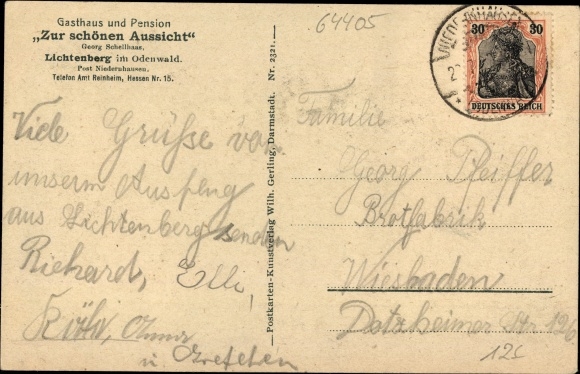 Gasthaus und Pension
„Zur schönen Aussicht"
Georg Schellhaas,
Lichtenberg im Odenwald.
Post Niedernhausen.
Telefon Amt Reinheim, Hessen Nr. 15.
64405
Viele Grüße von
unserm Ausflug
aus Lichtenberg senden
Richard, Elli,
Käthi, Anna
u Gretchen
Postkarten-Kunstverlag Wilh. Gerling, Darmstadt. Nr. 2321.
30 30
DEUTSCHES REICH
Familie
Georg Pfeiffer
Brotfabrik
Wiesbaden
Dotzheimer Str 126